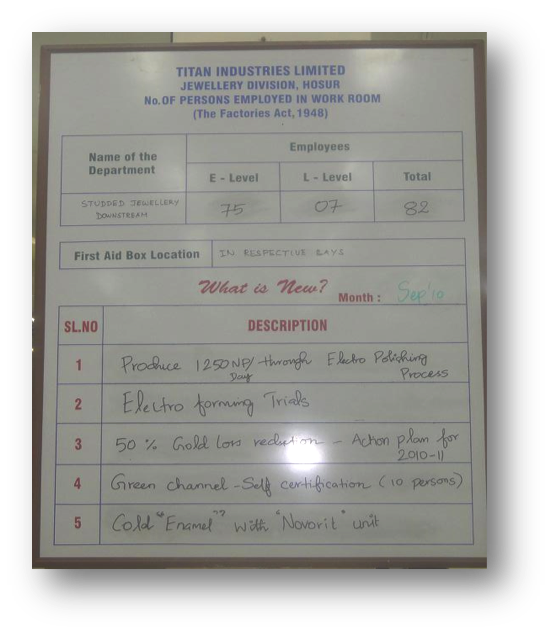 TITAN INDUSTRIES LIMITED
JEWELLERY DIVISION, HOSUR
No.OF PERSONS EMPLOYED IN WORK ROOM
(The Factories Act, 1948)
Name of the Department
Employees
E - Level L - Level Total
STUDDED JEWELLERY DOWNSTREAM 75 07 82
First Aid Box Location IN RESPECTIVE BAYS
What is New?
Month : Sep'10
SL.NO DESCRIPTION
1 Produce 1250 NP/Day through Electro Polishing Process
2 Electro forming Trials
3 50 % Gold Loss reduction - Action plan for 2010-11
4 Green channel - Self certification (10 persons)
5 Cold "Enamel" with "Novoril" unit